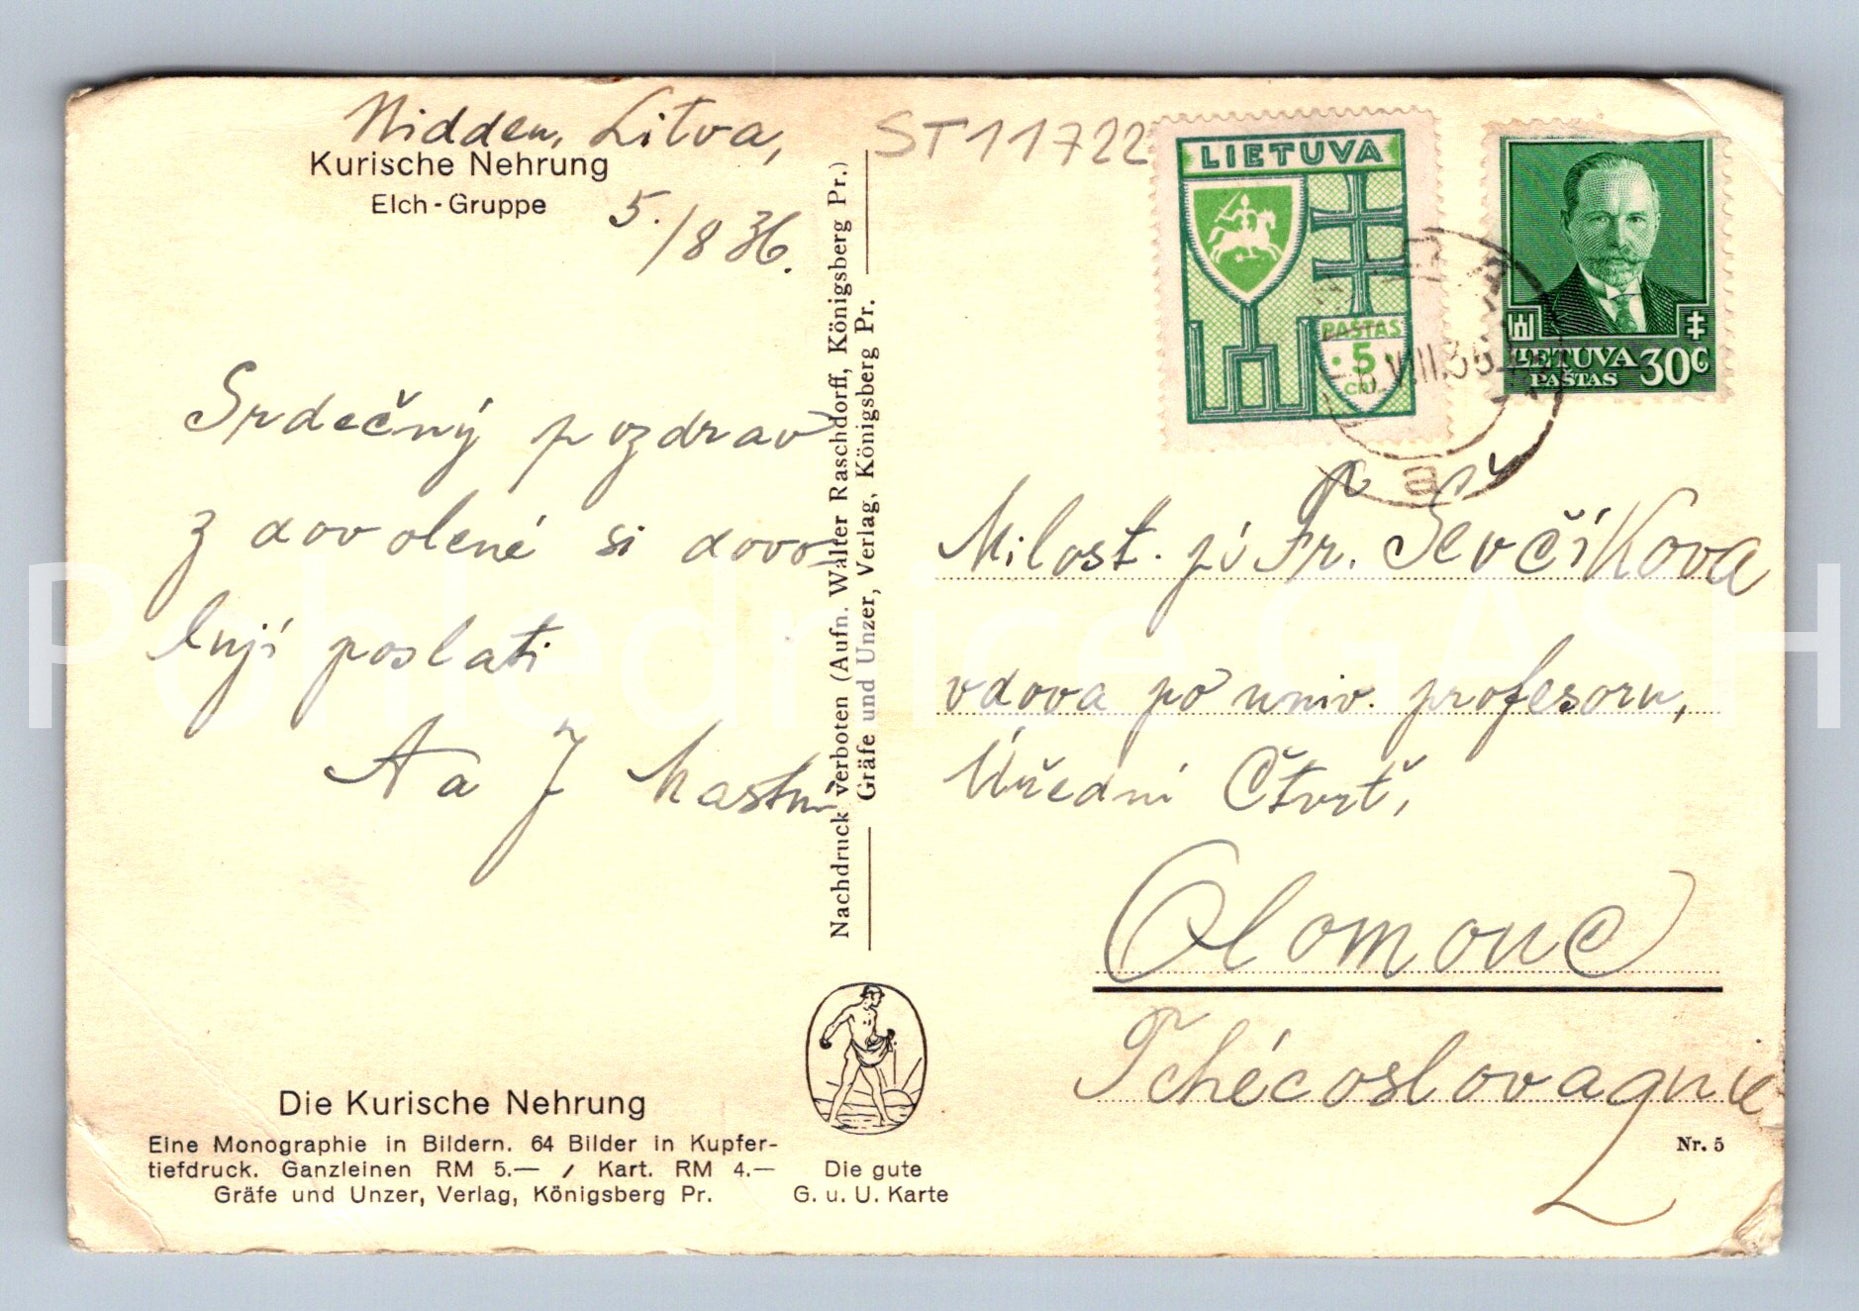 Nidden, Litva,
Kurische Nehrung
Elch-Gruppe
5./8 36.
ST11722
LIETUVA
PAŠTAS
5
CNT.
LIETUVA 30C
PAŠTAS
VIII.36
a
Srdečný pozdrav
z dovolené si dovo
lují poslati
A a J Mastní
Nachdruck verboten (Aufn. Walter Raschdorff, Königsberg Pr.)
Gräfe und Unzer, Verlag, Königsberg Pr.
Milost. pí Fr. Ševčíkova
vdova po univ. profesoru,
Úřední Čtvrť,
Olomouc
Tchécoslovaquie
Die Kurische Nehrung
Eine Monographie in Bildern. 64 Bilder in Kupfer-
tiefdruck. Ganzleinen RM 5.— / Kart. RM 4.—
Gräfe und Unzer, Verlag, Königsberg Pr.
Die gute
G. u. U. Karte
Nr. 5
Pohlednice GASH